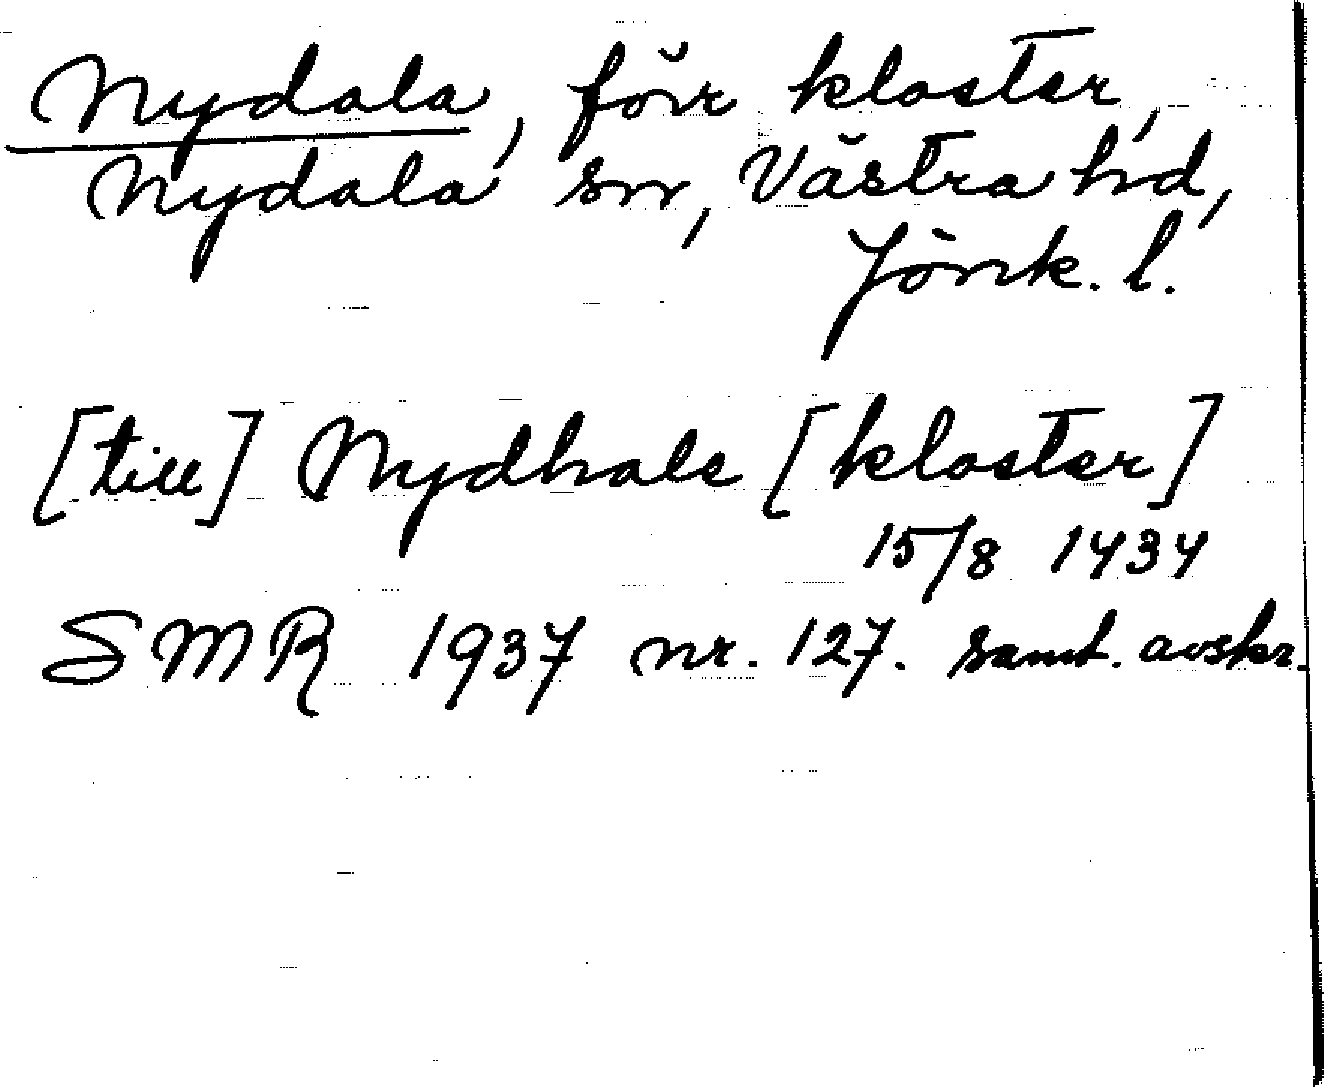 Nydala, förr kloster,
Nydala sn, Västra hd,
Jönk. l.
[till] Nydhale [kloster]
15/8 1434
SMR 1937 nr. 127. samt. avskr.